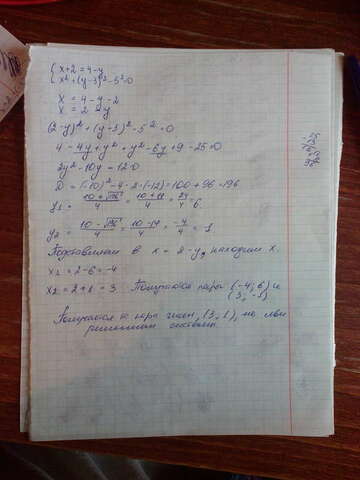 { x+2=4-y
{ x²+(y-3)²-5²=0
x = 4-y-2
x = 2-y
(2-y)²+(y-3)²-5²=0
4-4y+y²+y²-6y+9-25=0
2y²-10y-12=0
D=(-10)²-4·2·(-12)=100+96=196
y₁ = (10+√196)/4 = (10+14)/4 = 24/4 = 6
y₂ = (10-√196)/4 = (10-14)/4 = -4/4 = -1
Подставляем в x=2-y, находим x.
x₁=2-6=-4
x₂=2+1=3 Получаем пары (-4;6) и
(3;-1)
пара чисел (3,1), не
решением системы.